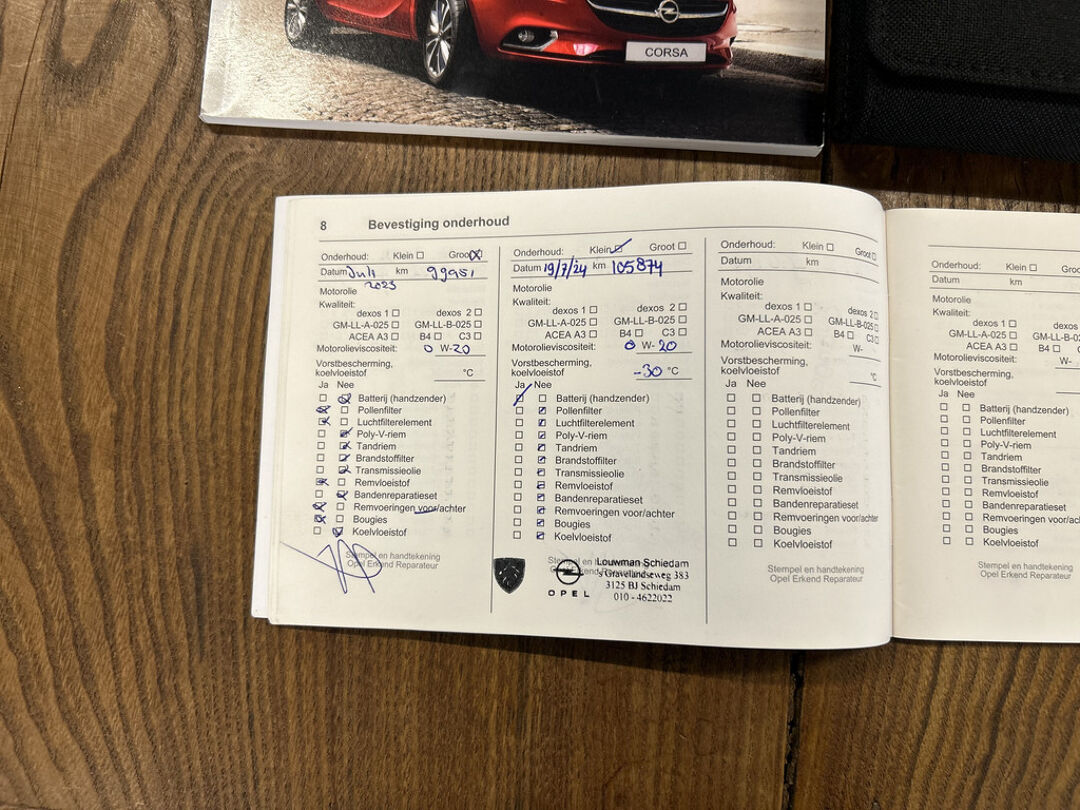 CORSA
8 Bevestiging onderhoud
Onderhoud: Klein ☐ Groot ☒
Datum Juli km 99951
2023
Motorolie
Kwaliteit:
dexos 1 ☐ dexos 2 ☐
GM-LL-A-025 ☐ GM-LL-B-025 ☐
ACEA A3 ☐ B4 ☐ C3 ☐
Motorolieviscositeit: 0 W-20
Vorstbescherming,
koelvloeistof °C
Ja Nee
☐ ☒ Batterij (handzender)
☒ ☐ Pollenfilter
☒ ☐ Luchtfilterelement
☐ ☒ Poly-V-riem
☐ ☒ Tandriem
☐ ☒ Brandstoffilter
☐ ☒ Transmissieolie
☒ ☐ Remvloeistof
☐ ☒ Bandenreparatieset
☒ ☐ Remvoeringen voor/achter
☒ ☐ Bougies
☐ ☒ Koelvloeistof
Stempel en handtekening
Opel Erkend Reparateur
Onderhoud: Klein ☑ Groot ☐
Datum 19/7/24 km 105874
Motorolie
Kwaliteit:
dexos 1 ☐ dexos 2 ☐
GM-LL-A-025 ☐ GM-LL-B-025 ☐
ACEA A3 ☐ B4 ☐ C3 ☐
Motorolieviscositeit: 0 W-20
Vorstbescherming,
koelvloeistof -30 °C
Ja Nee
☑ ☐ Batterij (handzender)
☐ ☑ Pollenfilter
☐ ☑ Luchtfilterelement
☐ ☑ Poly-V-riem
☐ ☑ Tandriem
☐ ☑ Brandstoffilter
☐ ☑ Transmissieolie
☐ ☑ Remvloeistof
☐ ☑ Bandenreparatieset
☐ ☑ Remvoeringen voor/achter
☐ ☑ Bougies
☐ ☑ Koelvloeistof
Stempel en handtekening
Opel Erkend Reparateur
OPEL
Louwman Schiedam
's Gravelandseweg 383
3125 BJ Schiedam
010 - 4622022
Onderhoud: Klein ☐ Groot ☐
Datum km
Motorolie
Kwaliteit:
dexos 1 ☐ dexos 2 ☐
GM-LL-A-025 ☐ GM-LL-B-025 ☐
ACEA A3 ☐ B4 ☐ C3 ☐
Motorolieviscositeit: W-
Vorstbescherming,
koelvloeistof °C
Ja Nee
☐ ☐ Batterij (handzender)
☐ ☐ Pollenfilter
☐ ☐ Luchtfilterelement
☐ ☐ Poly-V-riem
☐ ☐ Tandriem
☐ ☐ Brandstoffilter
☐ ☐ Transmissieolie
☐ ☐ Remvloeistof
☐ ☐ Bandenreparatieset
☐ ☐ Remvoeringen voor/achter
☐ ☐ Bougies
☐ ☐ Koelvloeistof
Stempel en handtekening
Opel Erkend Reparateur
Onderhoud: Klein ☐ Groot
Datum km
Motorolie
Kwaliteit:
dexos 1 ☐ dexos
GM-LL-A-025 ☐ GM-LL-B-02
ACEA A3 ☐ B4 ☐
Motorolieviscositeit: W-
Vorstbescherming,
koelvloeistof
Ja Nee
☐ ☐ Batterij (handzender)
☐ ☐ Pollenfilter
☐ ☐ Luchtfilterelement
☐ ☐ Poly-V-riem
☐ ☐ Tandriem
☐ ☐ Brandstoffilter
☐ ☐ Transmissieolie
☐ ☐ Remvloeistof
☐ ☐ Bandenreparatieset
☐ ☐ Remvoeringen voor/achter
☐ ☐ Bougies
☐ ☐ Koelvloeistof
Stempel en handtekening
Opel Erkend Reparateur